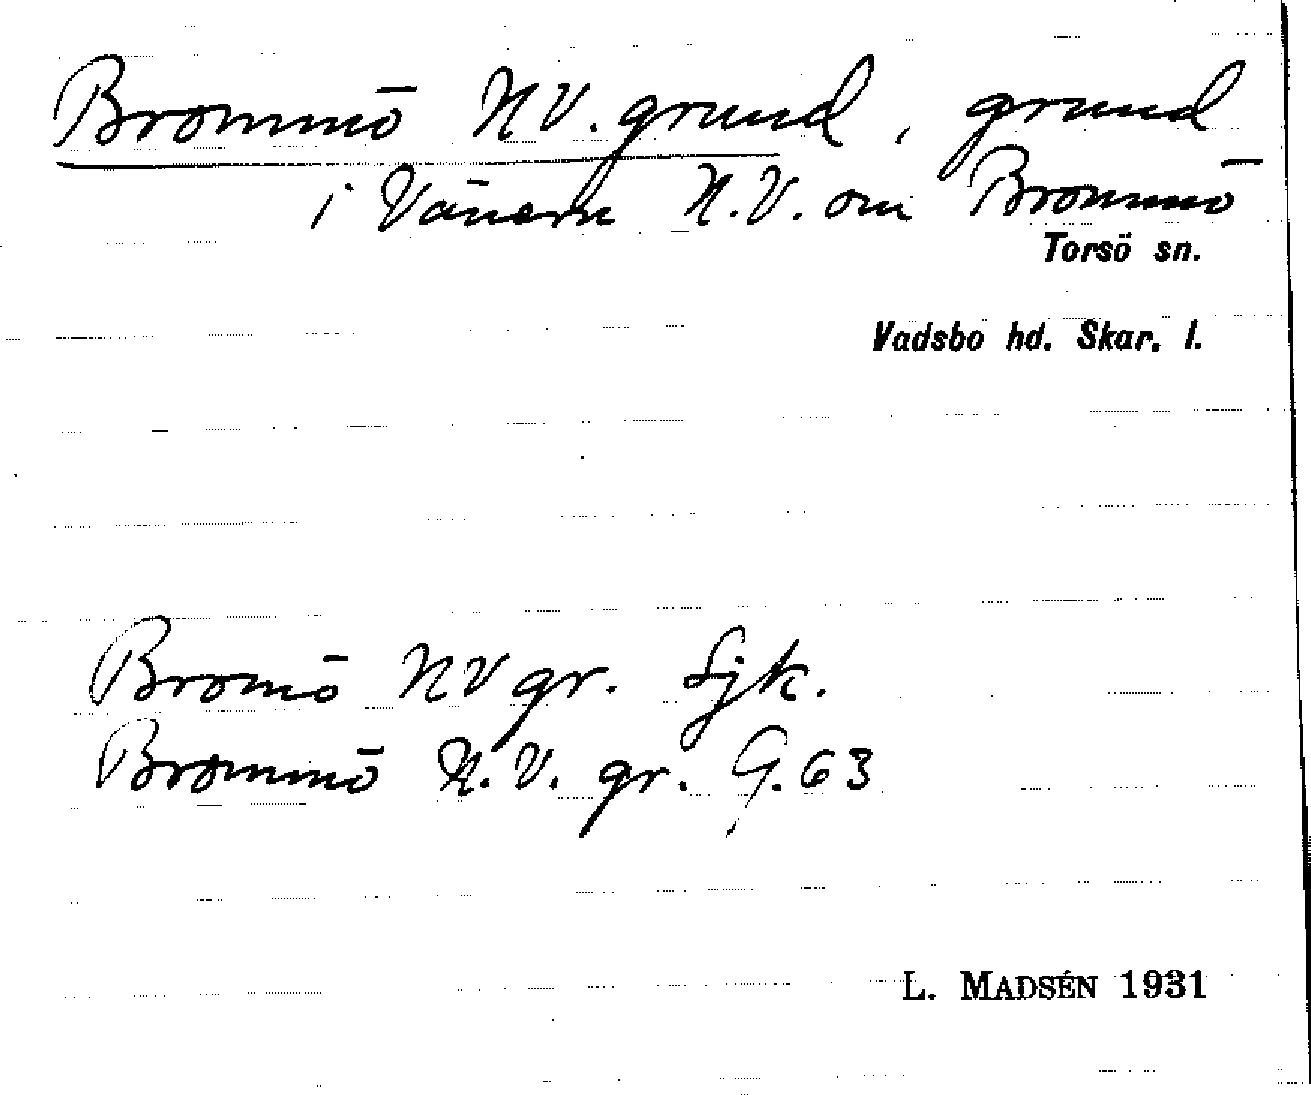 Brommö NV. grund, grund
i Vänern N.V. om Brommö
Torsö sn.
Vadsbo hd. Skar. l.
Bromö NV gr. Sjk.
Brommö N.V. gr. G. 63
L. MADSÉN 1931